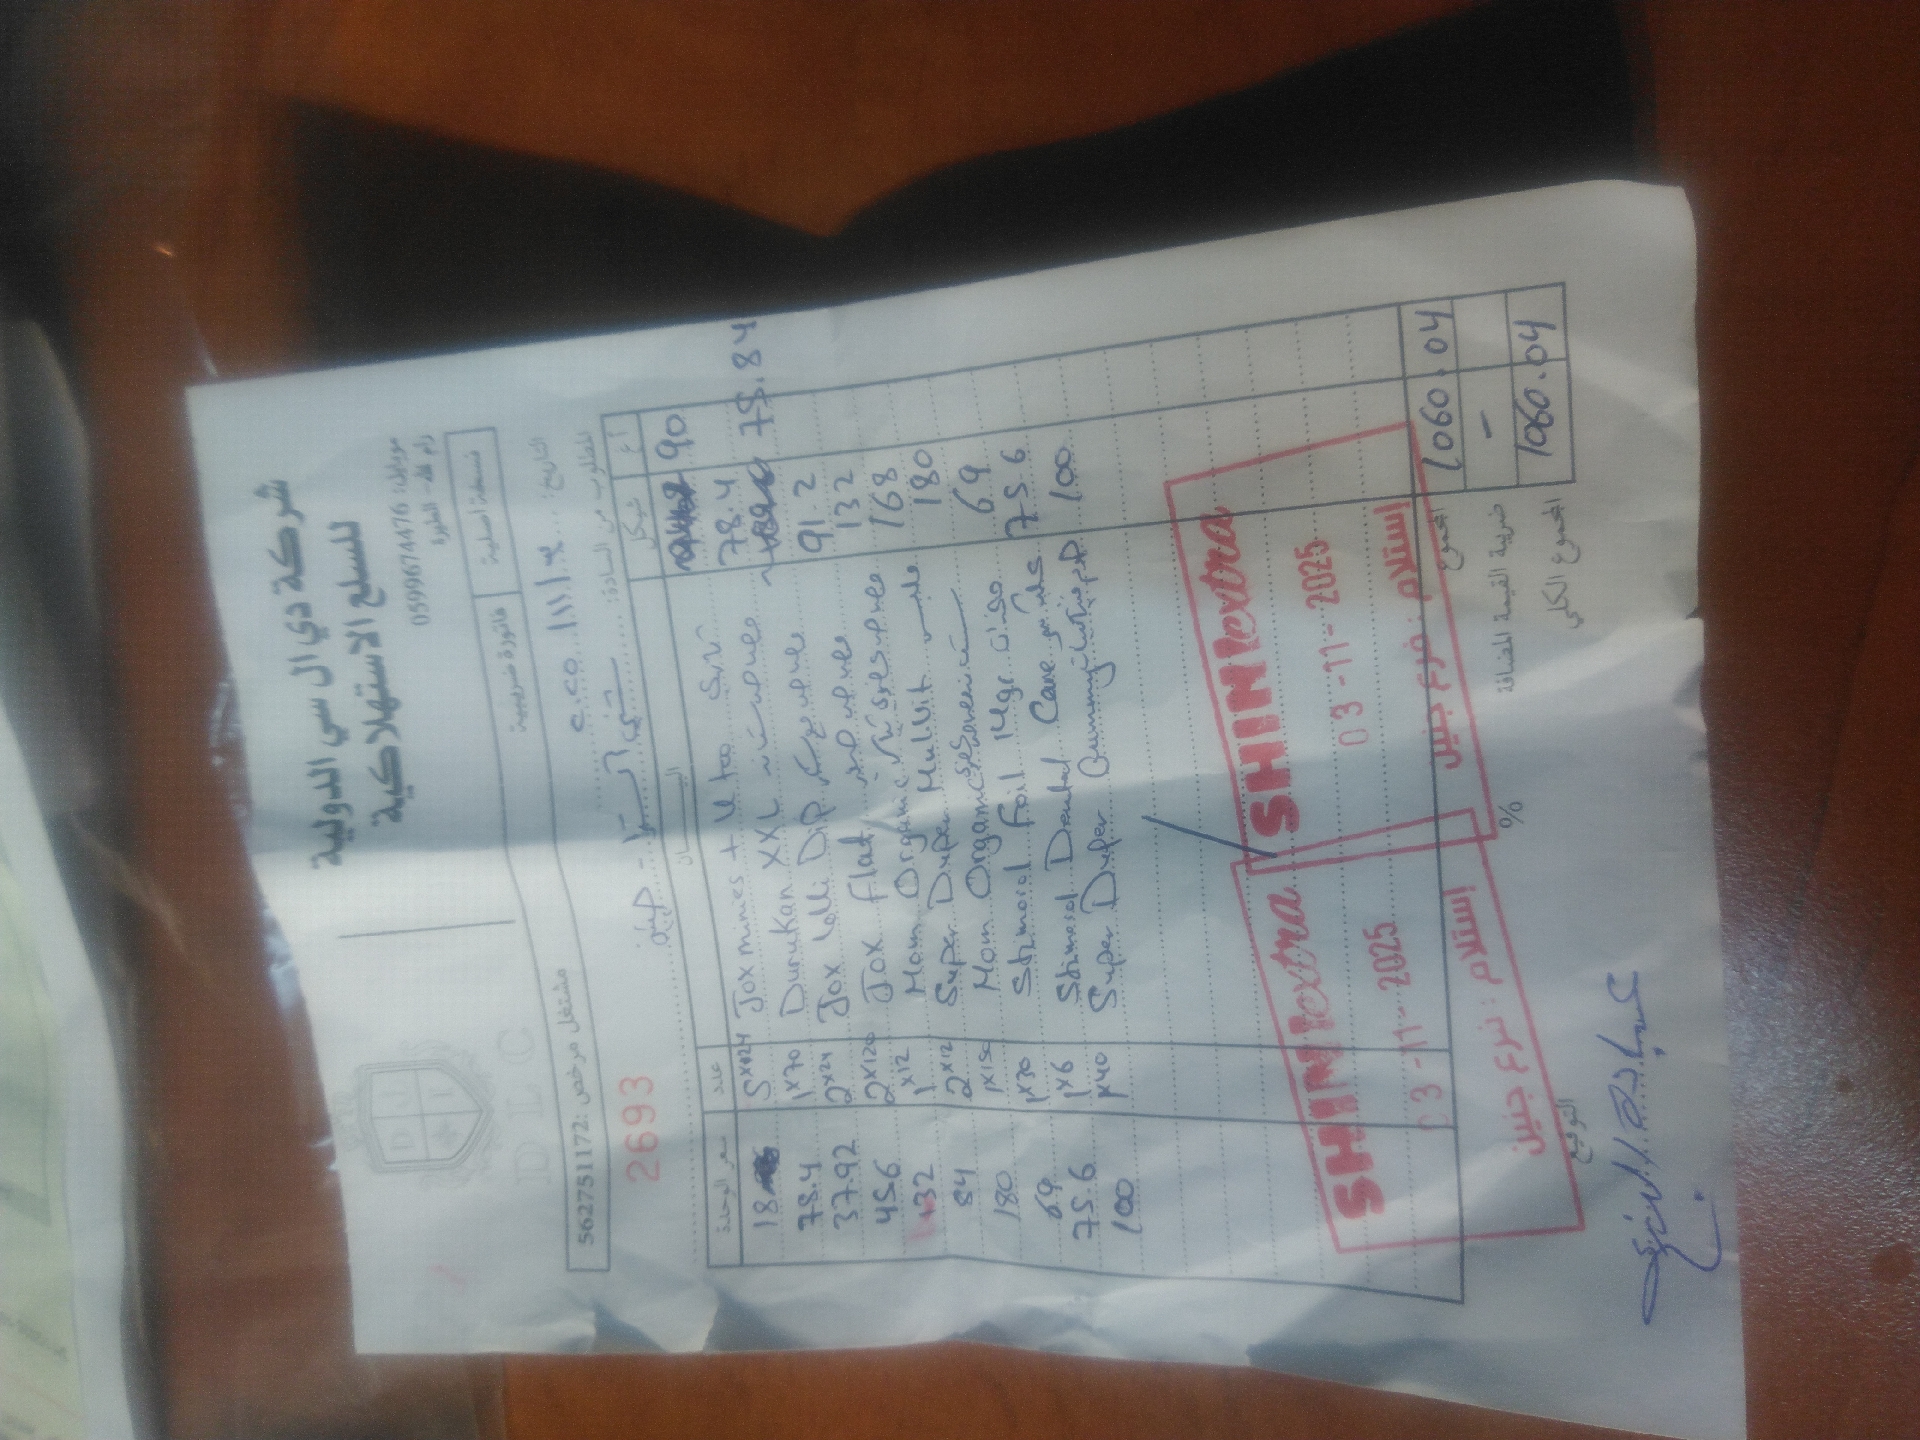 شركة دي ال سي الدولية
للسلع الاستهلاكية
موبايل: 0599674476
رام الله - الطيرة
DLC
مشتغل مرخص: 562751172
فاتورة ضريبية
نسخة أصلية
2693
التاريخ:
المطلوب من السادة:
سعر الوحدة عدد البيان شيكل
18 5x24 Tox minies + Uto 90
78.4 1x70 Durukan XXL 78.4
37.92 2x24 Tox Lolli Dip 75.84
45.6 2x120 Tox Flat 91.2
132 1x12 Mom Organic 132
84 2x12 Super Duper Multivit 168
180 Mom Organic 180
69 1x30 Stimorol Foil 14gr 69
75.6 1x6 Stimorol Dental Care 75.6
100 1x40 Super Duper Gummy 100
SHINI extra
03-11-2025
إستلام: فرع جنين
SHINI extra
03-11-2025
إستلام: فرع جنين
المجموع 1060.04
ضريبة القيمة المضافة % -
المجموع الكلي 1060.04
التوقيع